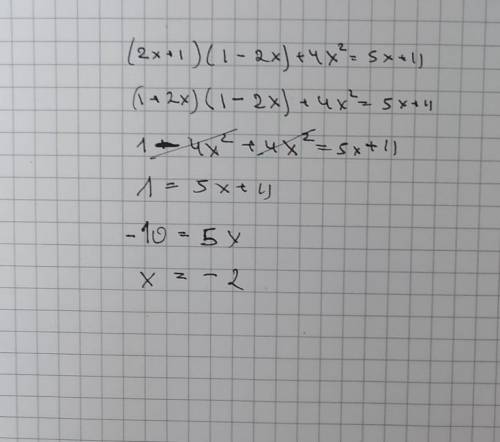 (2x+1)(1-2x)+4x²=5x+11
(1+2x)(1-2x)+4x²=5x+11
1-4x²+4x²=5x+11
1=5x+11
-10=5x
x=-2